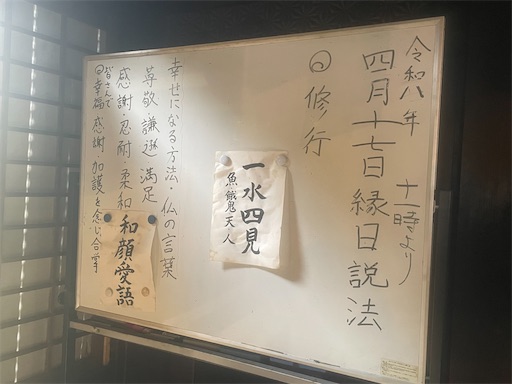 令和八年
四月十七日縁日説法
十一時より
◎修行
一水四見
魚餓鬼天人
幸せになる方法・仏の言葉
尊敬・謙遜 満足
感謝・忍耐・柔和
和顔愛語
皆さんで
◎幸福感謝 加護を念じ合掌